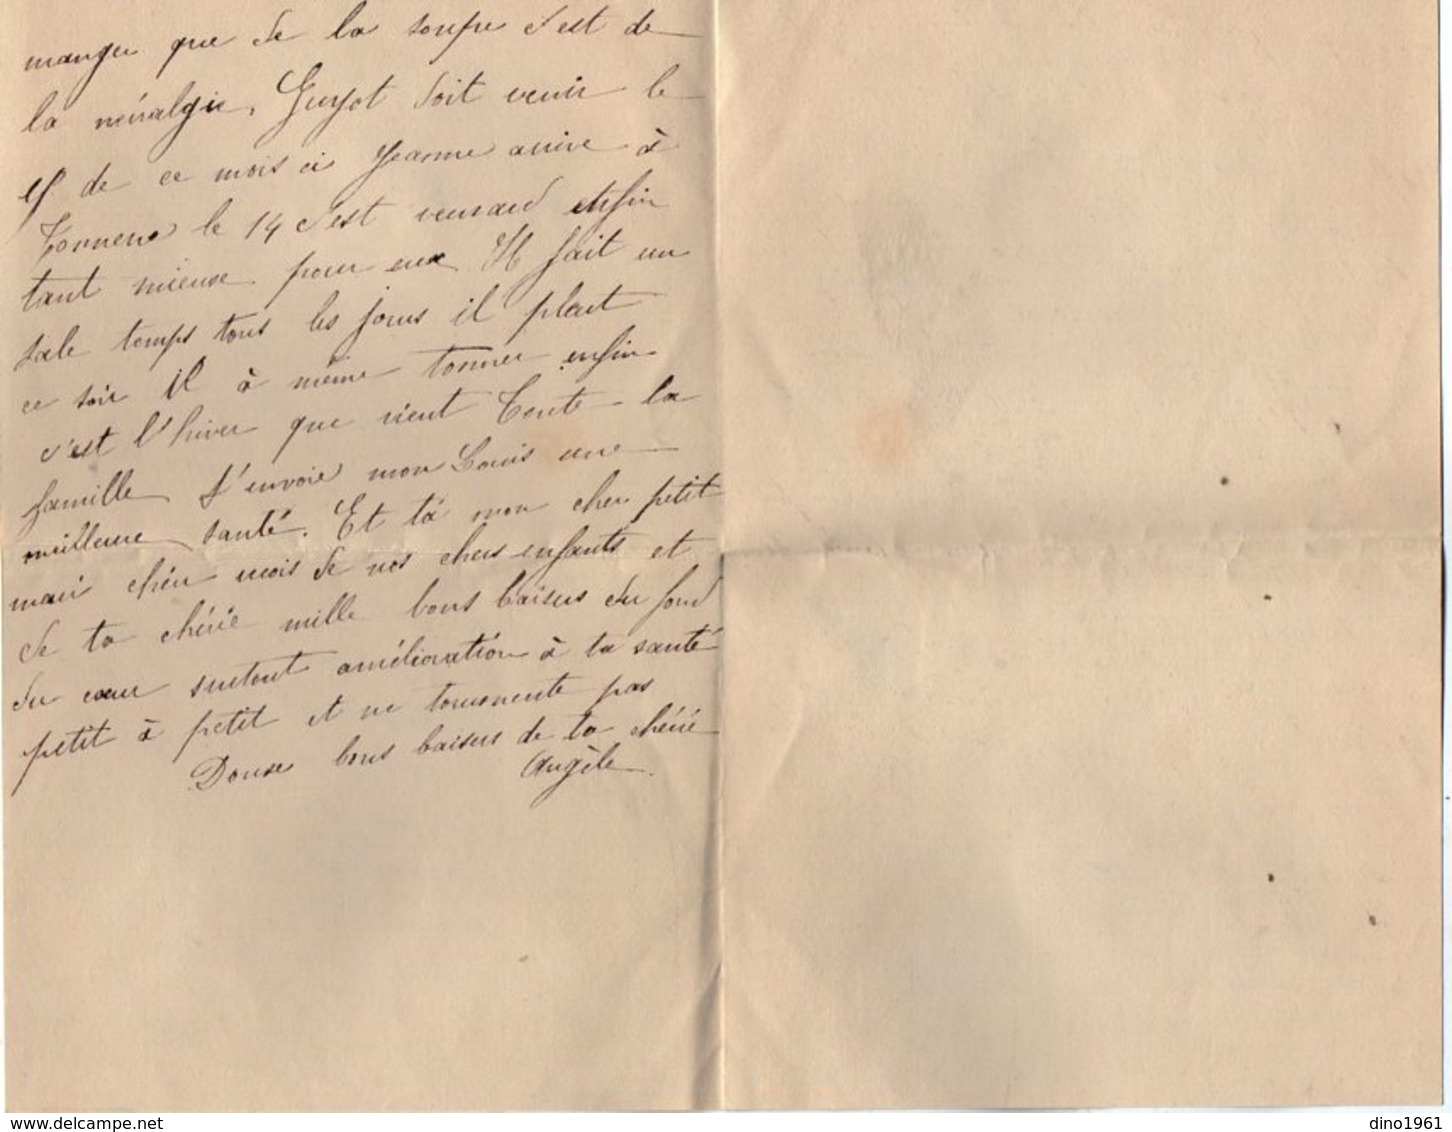 manger que de la soupe c'est de
la néralgie, Guyot doit venir le
de ce mois ci Jeanne arrive à
le 14 c'est enfin
tant mieuse pour eux. Il fait un
sale temps tous les jours il pleut
ce soir il à même tonner enfin
c'est l'hiver que vient Toute la
famille t'envoie mon Louis une
meilleure santé. Et tà mon cher petit
mari chéri reçois de nos chers enfants et
de ta chérie mille bons baisers du fond
du cœur surtout amélioration à ta santé
petit à petit et ne tourmente pas
Douse bons baisers de ta chérie
Angèle.
delcampe.net
dino1961